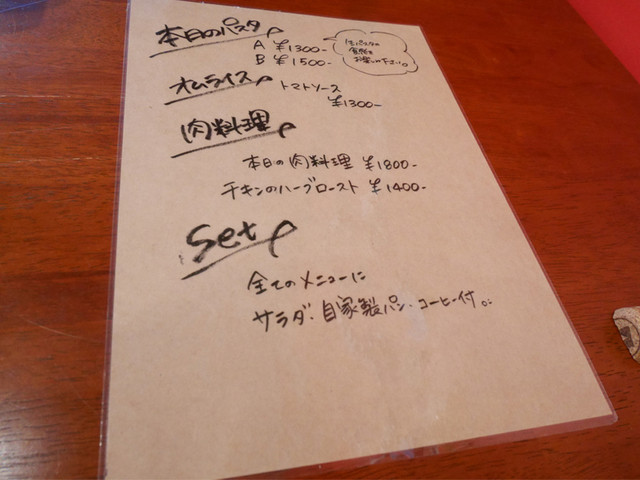 本日のパスタ
A ¥1300-
B ¥1500-
生パスタの
食感を
お楽しみ下さい。
オムライス トマトソース
¥1300-
肉料理
本日の肉料理 ¥1800-
チキンのハーブロースト ¥1400-
Set
全てのメニューに
サラダ・自家製パン・コーヒー付。